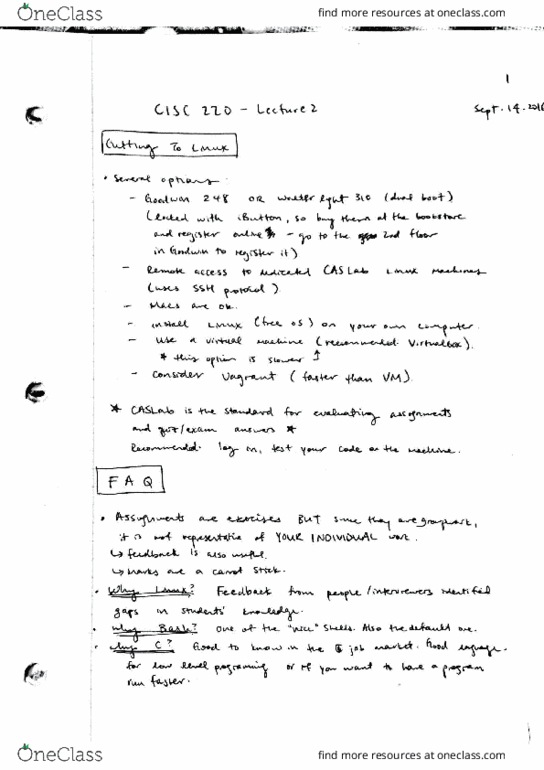 OneClass
find more resources at oneclass.com
1
CISC 220 - Lecture 2
Sept. 14. 2016
Getting To Linux
• Several options
- Goodwin 248 OR Walter Light 310 (dual boot)
(locked with iButton, so buy them at the bookstore
and register online - go to the 2nd floor
in Goodwin to register it)
- Remote access to dedicated CASLab Linux machines
(uses SSH protocol).
- Macs are ok.
- install Linux (free OS) on your own computer.
- Use a virtual machine (recommended: Virtualbox).
* this option is slower ↑
- Consider Vagrant (faster than VM).
* CASLab is the standard for evaluating assignments
and quiz/exam answers *
Recommended: log in, test your code on the machine.
FAQ
• Assignments are exercises BUT since they are groupwork,
it is not representative of YOUR INDIVIDUAL work.
↳ feedback is also useful.
↳ marks are a carrot stick.
• Why Linux? Feedback from people/interviewers identified
gaps in students' knowledge.
• Why Bash? One of the "nice" shells. Also the default one.
• Why C? Good to know in the job market. Good language
for low level programing or if you want to have a program
run faster.
OneClass
find more resources at oneclass.com